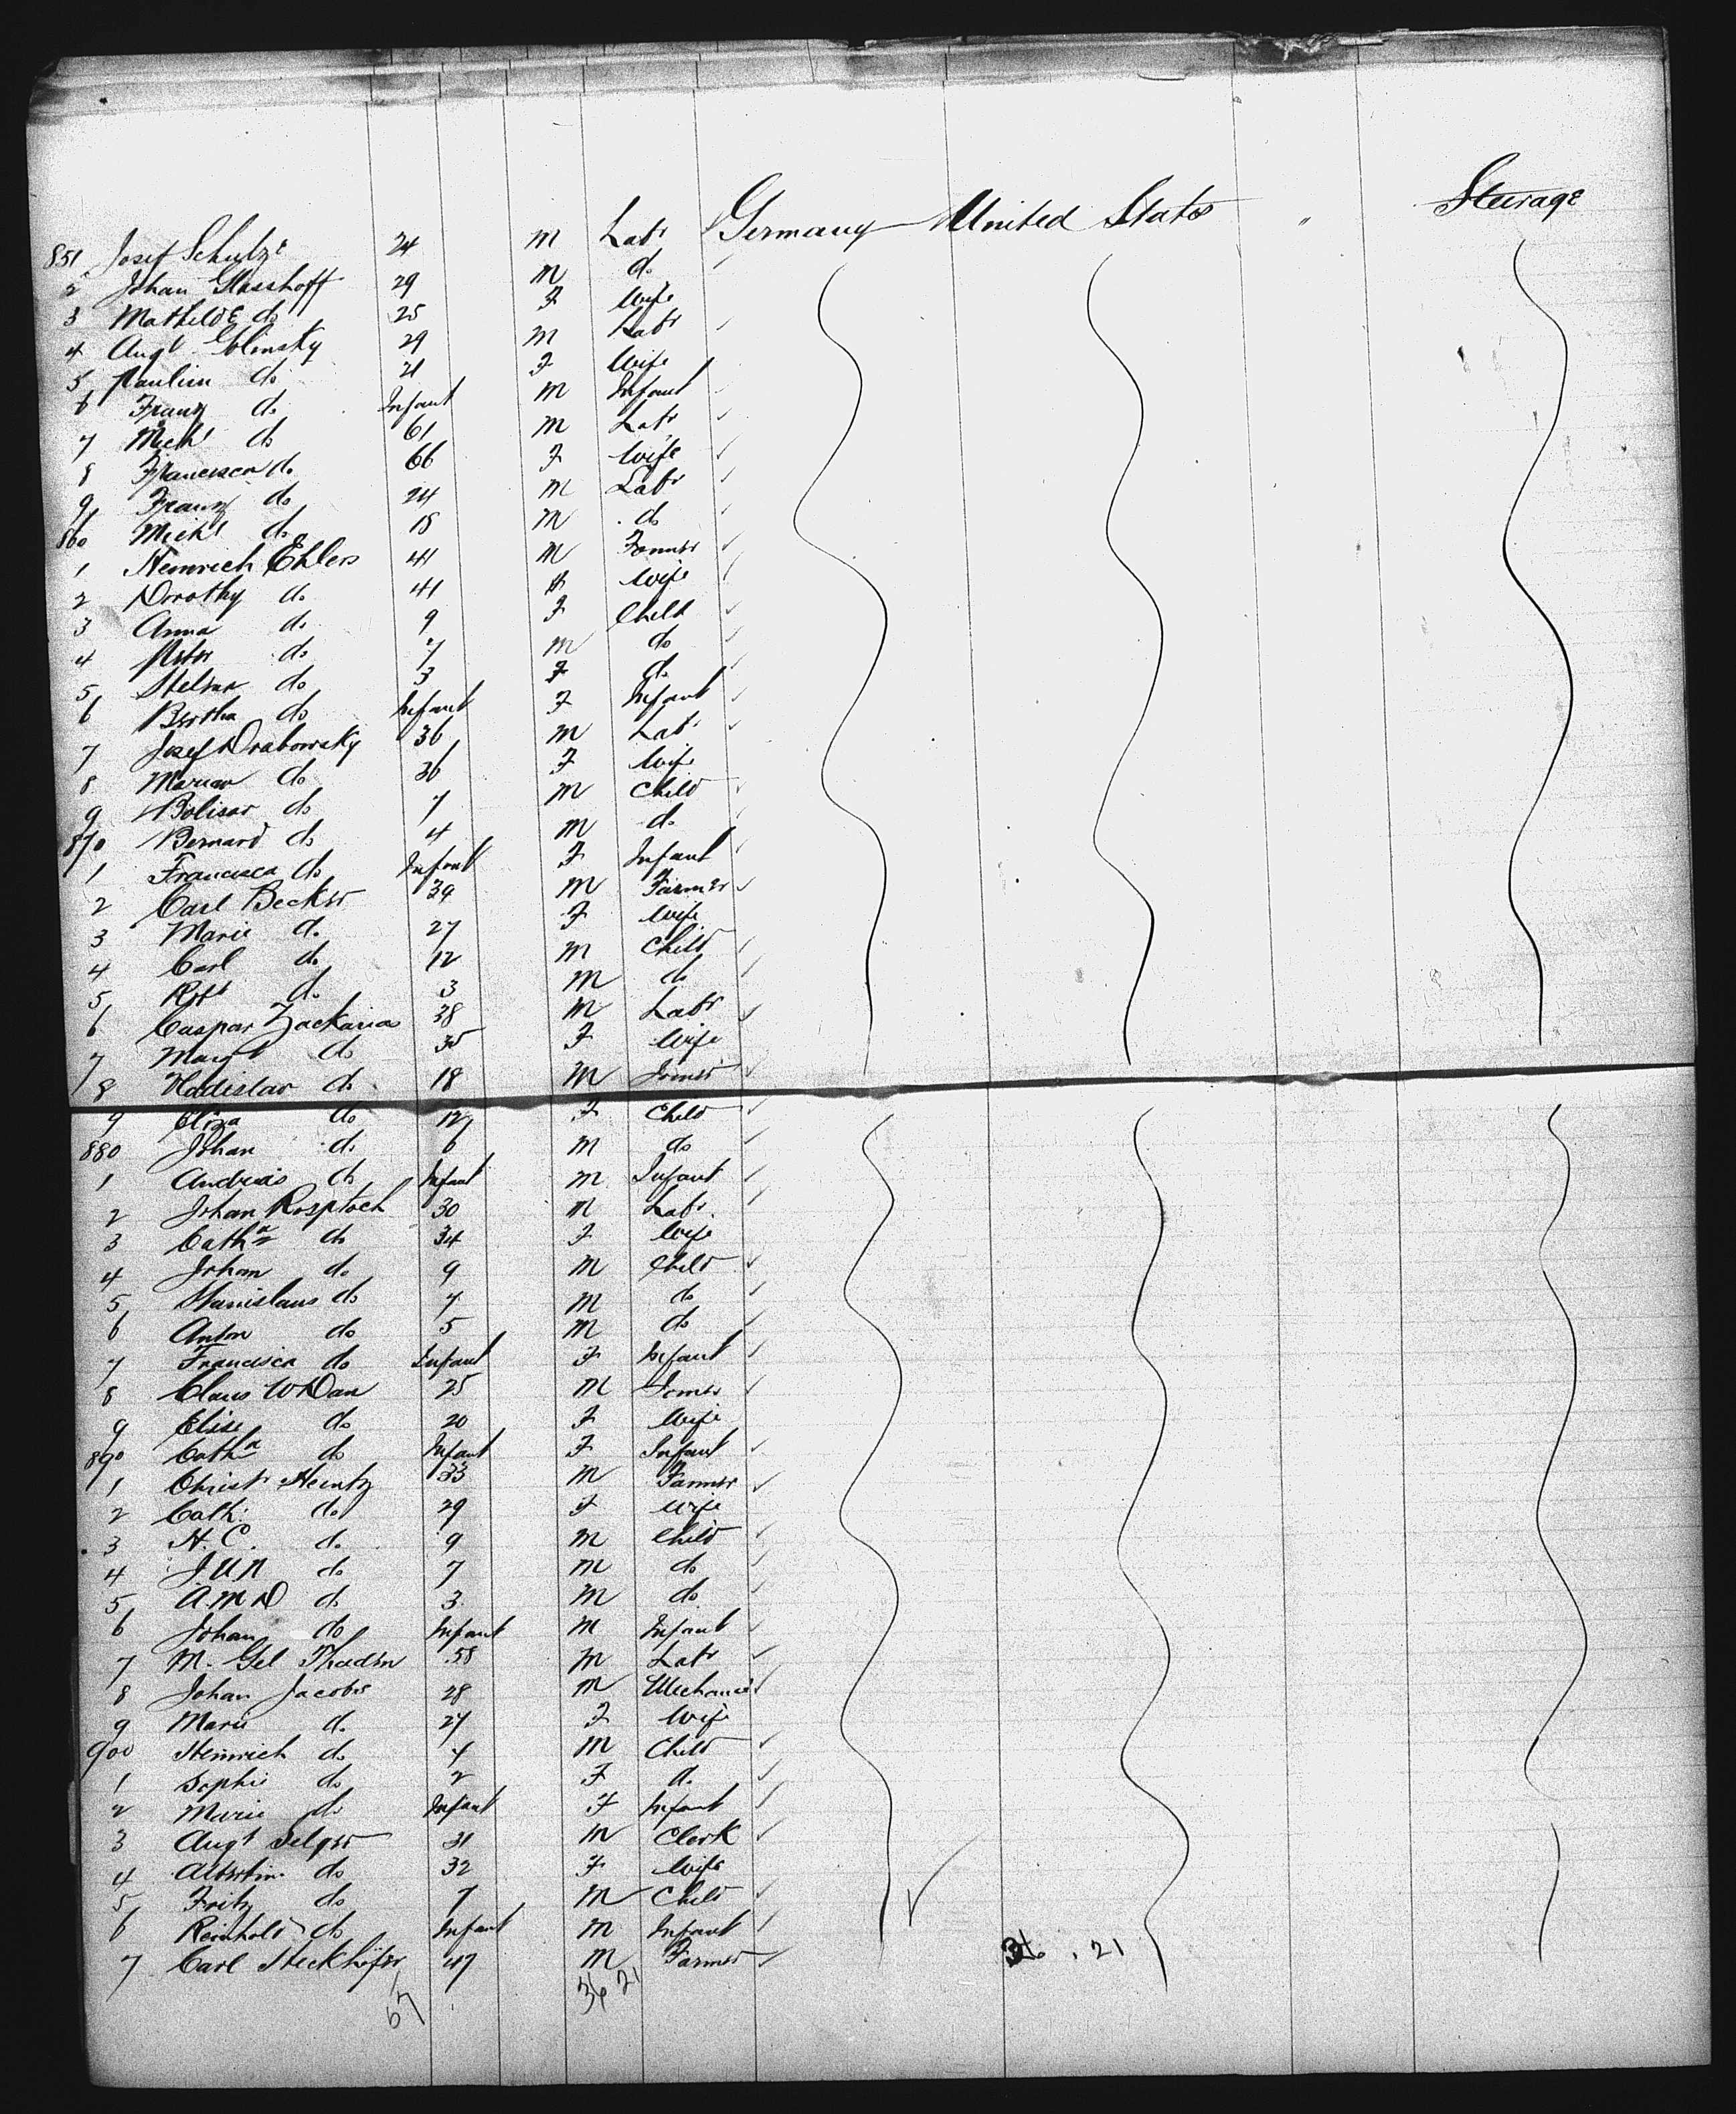 851 Josef Schultze 24 M Labr Germany United States " Steerage
2 Johan Glasshoff 29 M do
3 Mathilde do 25 F Wife
4 Augt Golinsky 29 M Labr
5 Paulin do 21 F Wife
6 Franz do Infant M Infant
7 Michl do 61 M Labr
8 Francisca do 66 F Wife
9 Franz do 24 M Labr
860 Michl do 18 M do
1 Heinrich Ehlers 41 M Farmer
2 Dorothy do 41 F Wife
3 Anna do 9 F Child
4 Peter do 7 M do
5 do 3 F do
6 Bertha do Infant F Infant
7 Josef Drabowsky 36 M Labr
8 Marian do 36 F Wife
9 Bolisar do 7 M Child
870 Bernard do 4 M do
1 Francisca do Infant F Infant
2 Carl Becker 39 M Farmer
3 Marie do 27 F Wife
4 Carl do 12 M Child
5 Robt do 3 M do
6 Caspar Zackarias 38 M Labr
7 Margt do 35 F Wife
8 Vladislav do 18 M Joiner
9 Eliza do 12 F Child
880 Johan do 6 M do
1 Andreas do Infant M Infant
2 Johan Rosptoch 30 M Labr
3 Catha do 34 F Wife
4 Johan do 9 M Child
5 Stanislaus do 7 M do
6 Anton do 5 M do
7 Francisca do Infant F Infant
8 Claus 25 M Joiner
9 Elise do 20 F Wife
890 Catha do Infant F Infant
1 Christ Heintz 33 M Farmer
2 Cath. do 29 F Wife
3 H. C. do 9 M Child
4 J.U.N do 7 M do
5 A.M.D do 3 M do
6 Johan do Infant M Infant
7 M. Gel Thadsn 58 M Labr
8 Johan Jacobs 28 M Mechanic
9 Marie do 27 F Wife
900 Heinrich do 4 M Child
1 Sophie do 2 F do
2 Marie do Infant F Infant
3 Augt Selger 31 M Clerk
4 Albertin do 32 F Wife
5 Fritz do 7 M Child
6 Reinhold do Infant M Infant
7 Carl Steckhöfer 47 M Farmer 36 . 21
57 36 21